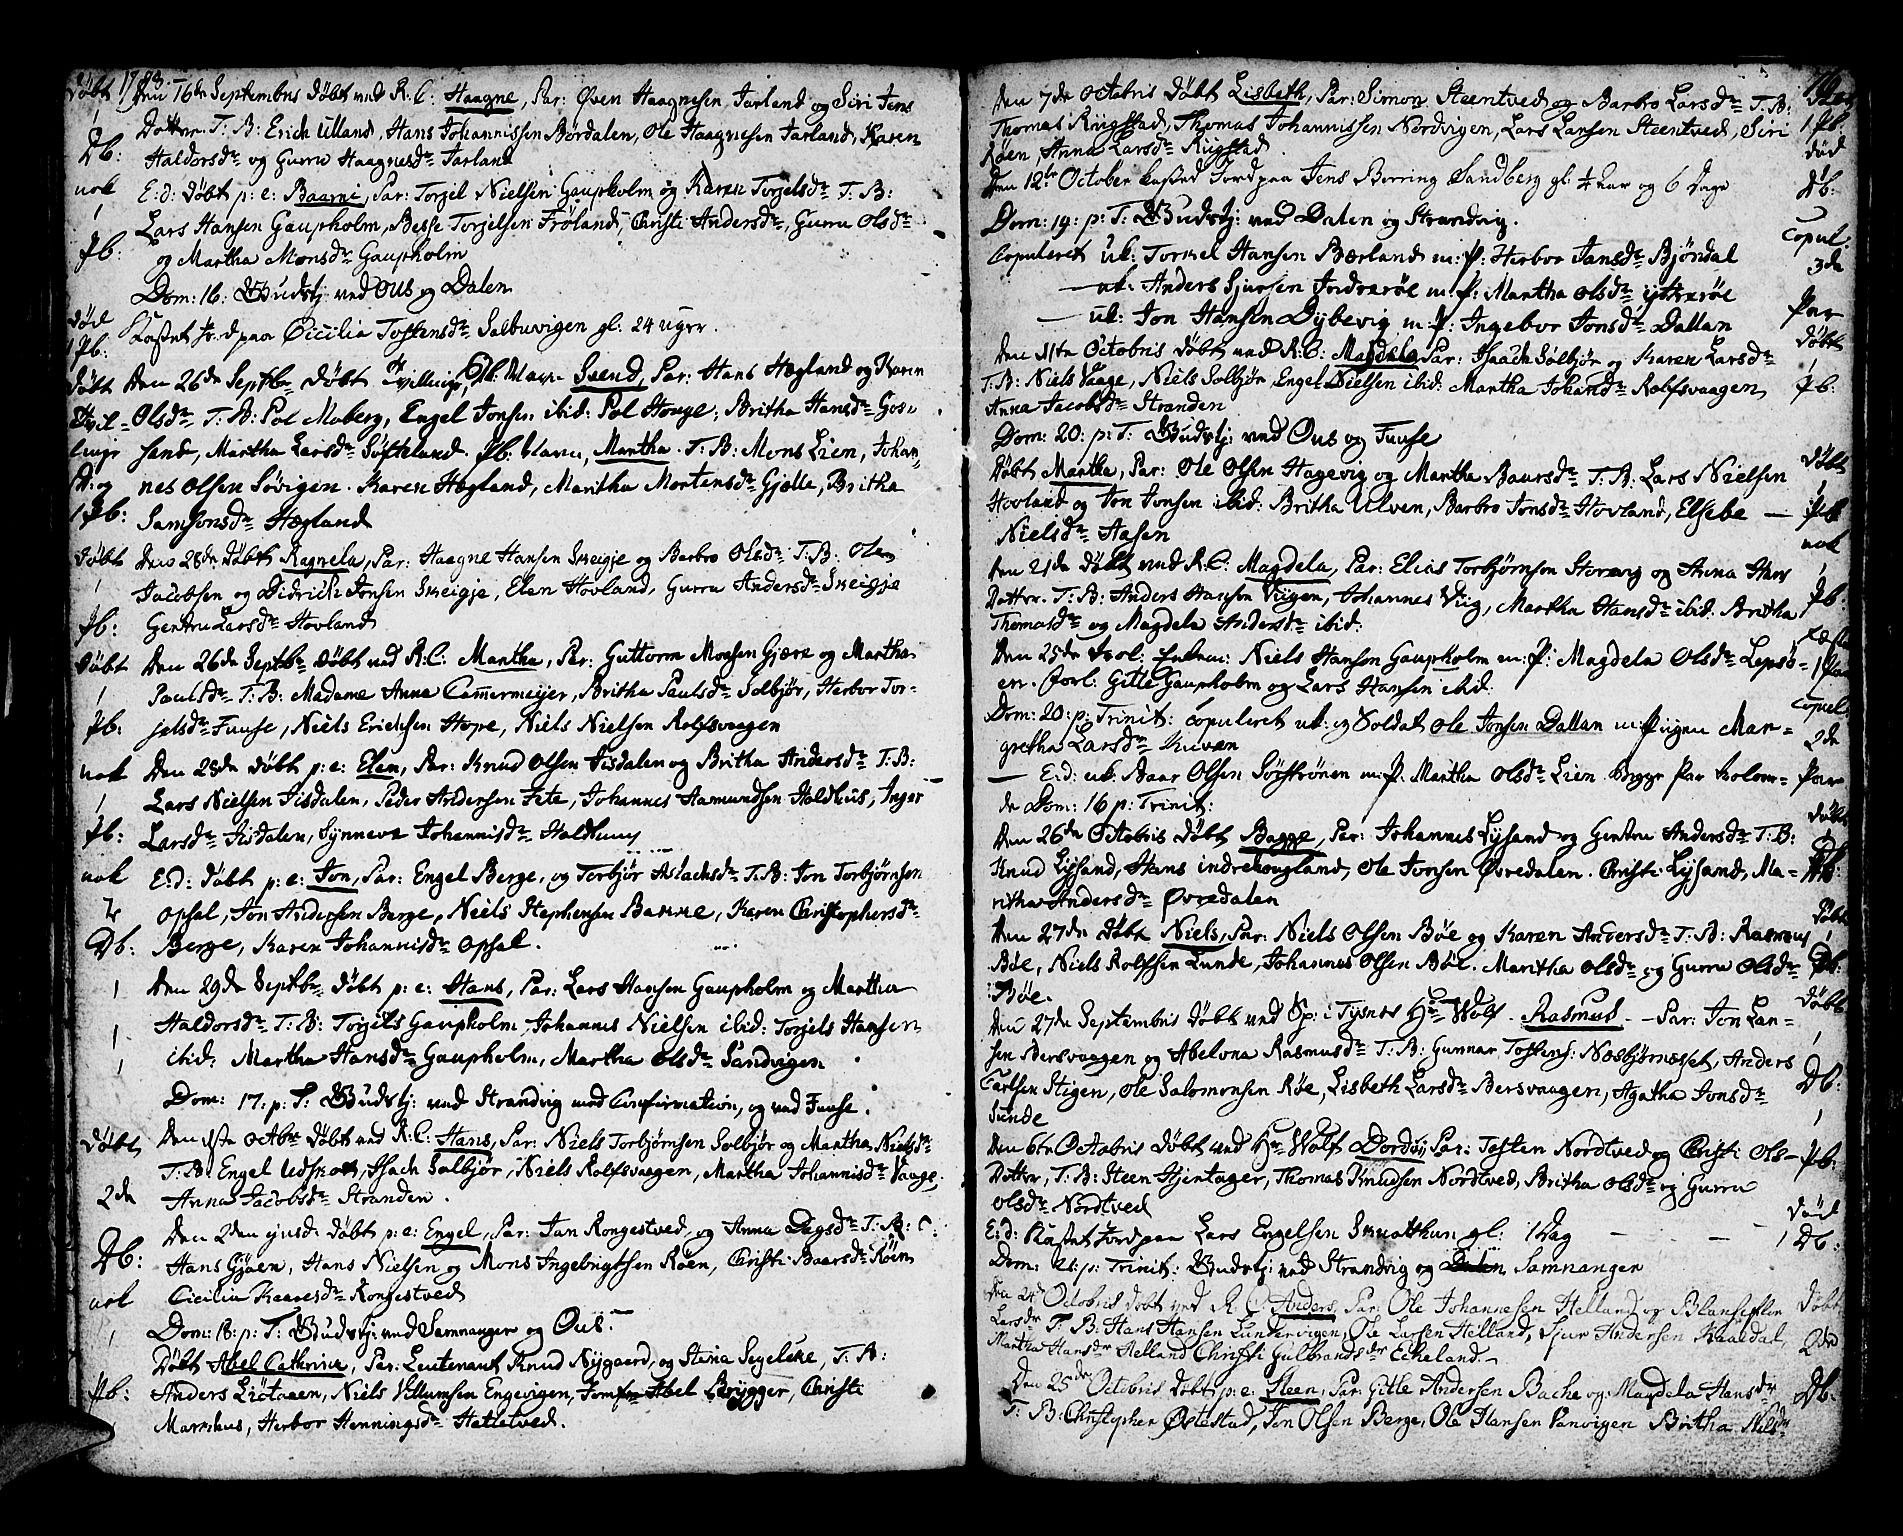 1783.
Døbt Den 16de Septembris døbt ved R. C: Haagne, Par: Øven Haagnesen Tarland og Siri Jens
1 Dotter. T: B: Erich Ulland, Hans Johannissen Bordalen, Ole Haagnesen Tarland, Karen
Db: Haldorsdr og Gurru Haagnesdr Tarland
nok E: d: døbt p: e: Baarni, Par: Torjel Nielsen Gaupholm og Karen Torjelsdr T: B:
1 Lars Hansen Gaupholm, Besse Torjelsen Frøland, Christi Andersdr, Gurru Olsdr
Pb: og Martha Monsdr Gaupholm
Dom: 16. Gudstj: ved Ous og Dalen
død Kastet Jord paa Cicilia Tostensdr Salbuvigen gl: 24 uger.
1 Pb:
Døbt Den 26de Septbr døbt Tvillinger, Db: Navn Svend, Par: Hans Hegland og Karen
Tvil- Olsdr T: B: Pol Moberg, Engel Jonsen ibid: Pol Houge, Britha Hansdr Gos-
linger sand, Martha Larsdr Søfteland. Pb: Navn, Martha. T: B: Mons Lien, Johan-
D: og nes Olsen Søvigen. Karen Hegland, Maritha Mortensdr Gjelle, Britha
1 Pb: Samsonsdr Hegland
Døbt Den 28de døbt Ragnela, Par: Haagne Hansen Skeigje og Barbro Olsdr T: B: Ole
1 Jacobsen og Didrich Jonsen Skeigje, Elen Hovland, Gurru Andersdr Skeigje
Pb: Gertru Larsdr Hovland
Døbt Den 26de Septbr døbt ved R. C: Martha, Par: Guttorm Monsen Gjære og Martha
1 Paulsdr T: B: Madame Anna Cammermeijer, Britha Paulsdr Solbjør, Herbor Tor-
Pb: jelsdr Fuuse, Niels Erichsen Hope, Niels Nielsen Rolfsvaagen
nok Den 28de døbt p: e: Elen, Par: Knud Olsen Tisdalen og Britha Andersdr T: B:
1 Lars Nielsen Tisdalen, Peder Andersen Tete, Johannes Aamundsen Haldhus, Inger
Pb: Larsdr Tisdalen, Synneve Johannisdr Haldhuus
nok E: d: døbt p: e: Jon, Par: Engel Berge, og Torbjør Aslachsdr T: B: Jon Torbjørnsen
Opsal, Jon Andersen Berge, Niels Stephensen Barme, Karen Christophersdr
Db: Berge, Karen Johannisdr Opsal.
1 Den 29de Septbr døbt p: e: Hans, Par: Lars Hansen Gaupholm og Martha
1 Haldorsdr T: B: Torjels Gaupholm, Johannes Nielsen ibid: Torjels Hansen
1 ibid: Martha Hansdr Gaupholm, Martha Olsdr Sandvigen
Dom: 17: p: T: Gudstj: ved Strandvig med Confirmation, og ved Fuuse.
Døbt Den 1ste Octobr døbt ved R. C: Hans, Par: Niels Torbjørnsen Solbjør og Martha Nielsdr
T: B: Engel Udskot, Isach Solbjør, Niels Rolfsvaagen, Martha Johannisdr Vaage,
2de Anna Jacobsdr Stranden.
Den 2den ejusd: døbt p: e: Engel, Par: Jan Rongestved, og Anna Dagsdr T: B:
Db: Hans Gjøen, Hans Nielsen og Mons Ingebrigtsen Røen, Christi Baarsdr Røen
nok Cicilia Kaaresdr Rongestved
1 Dom: 18: p: T: Gudstj: ved Samnanger og Ous.
Døbt Abel Cathrine, Par: Leutenant Knud Nijgaard, og Stena Segelcke, T: B:
Pb: Anders Liøtaaen, Niels Villumsen Engevigen, Jomfru Abel Brygger, Christi
1 Markhus, Herbor Henningsdr Hetletved.
Den 7de Octobris døbt Lisbeth, Par: Simon Steentved og Barbro Larsdr T: B: Døbt
Thomas Rügstad, Thomas Johannissen Nordvigen, Lars Larsen Steentved, Siri 1 Pb:
Røen, Anna Larsdr Rügstad. død
Den 12te October kastet Jord paa Jens Borring Sandberg gl: ¼ Aar og 6 Dage Db:
Dom: 19: p: T: Gudstj: ved Dalen og Strandvig.
Copuleret uk: Tormel Hansen Bærland m: P: Herbor Jansdr Bjøndal Copul:
— uk: Anders Sjursen Indrerøe m: P: Martha Olsdr ijtrerøe 3de
— uk: Jon Hansen Dybevig m: P: Ingebor Jonsdr Dallan Par
Den 11te Octobris døbt ved R. C: Magdela, Par: Isaach Solbjør og Karen Larsdr døbt
T: B: Niels Vaage, Niels Solbjør, Engel Nielsen ibid: Martha Johansdr Rolfsvaagen 1 Pb:
Anna Jacobsdr Stranden
Dom: 20: p: T: Gudstj: ved Ous og Fuuse
Døbt Martha, Par: Ole Olsen Hagevig og Martha Baarsdr T: B: Lars Nielsen døbt
Hovland og Jon Jonsen ibid: Britha Ulven, Barbro Jonsdr Hovland, Elsebe — 1 Pb
Nielsdr Hasen nok
Den 21de døbt ved R. C: Magdela, Par: Elias Torbjørnsen Storevig og Anna Hans 1
Dotter. T: B: Anders Hansen Viigen, Johannes Viig, Martha Hansdr ibid. Britha Pb:
Thomasdr og Magdela Andersdr ibid:
Den 25de Niels Hanson Gaupholm m: P: Magdela Olsdr Lepsø-
en. Gitle Gaupholm og Lars Hansen ibid: 1 Par
Dom: 20: p: Trinit: Copuleret uk: og Soldat Ole Jonsen Dallan m: Pigen Mar- Copul
gretha Larsdr Kuven 2de
— E: d: uk: Baar Olsen Sørstrønen m: P: Martha Olsdr Lien Par
de Dom: 16 p: Trinit:
Den 26de Octobris døbt Bagge, Par: Johannes Lysand og Gertru Andersdr T: B: døbt
Knud Lysand, Hans indre Hougland, Ole Jonsen Øvredalen. Christi Lysand, Ma- Db:
ritha Andersdr Øvredalen
Den 27de døbt Niels, Par: Niels Olsen Bøe og Karen Andersdr T: B: Rasmus Døbt
Bøe, Niels Rolfsen Lunde, Johannes Olsen Bøe. Maritha Olsdr og Gurru Olsdr Db:
Bøe.
Den 27de Septembris døbt ved Sp: i Tysnes Hr Wolf. Rasmus — Par: Jon Lar- Døbt
sen Bersvaagen og Abelona Rasmusdr T: B: Gunnar Tostens: Nesbjørneset, Anders 1
Carlsen Stigen, Ole Salomonsen Røe, Lisbeth Larsdr Bersvaagen, Agatha Jonsdr Db:
Sunde 1
Den 6te Octobris døbt ved Hr Wolf Dordij Par: Tosten Nordtved og Christi Ols- Pb:
Dotter, T: B: Steen Hjertager, Thomas Knudsen Nordtved, Britha Olsdr og Gurru
Olsdr Nordtved død
E: d: Kastet Jord paa Lars Engelsen Skeatthun gl: 1 Dag — — — 1 Db:
Dom: 21: p: Trinit: Gudstj: ved Strandvig og Samnanger
Den 24de Octobris døbt ved R. C Anders, Par: Ole Johannesen Helland og Blanseflor Døbt
Larsdr T: B: Hans Hansen Lundervigen, Ole Larsen Helland, Sjur Andersen Kaaedal, 2de
Martha Hansdr Helland Christi Gulbrandsdr Eikeland.—
Den 25de Octobris døbt p: e: Steen, Par: Gitle Andersen Backe og Magdela Hansdr Db:
T: B: Christopher Øvstestad, Jon Olsen Berge, Ole Hansen Vanvigen Britha Nilsdr